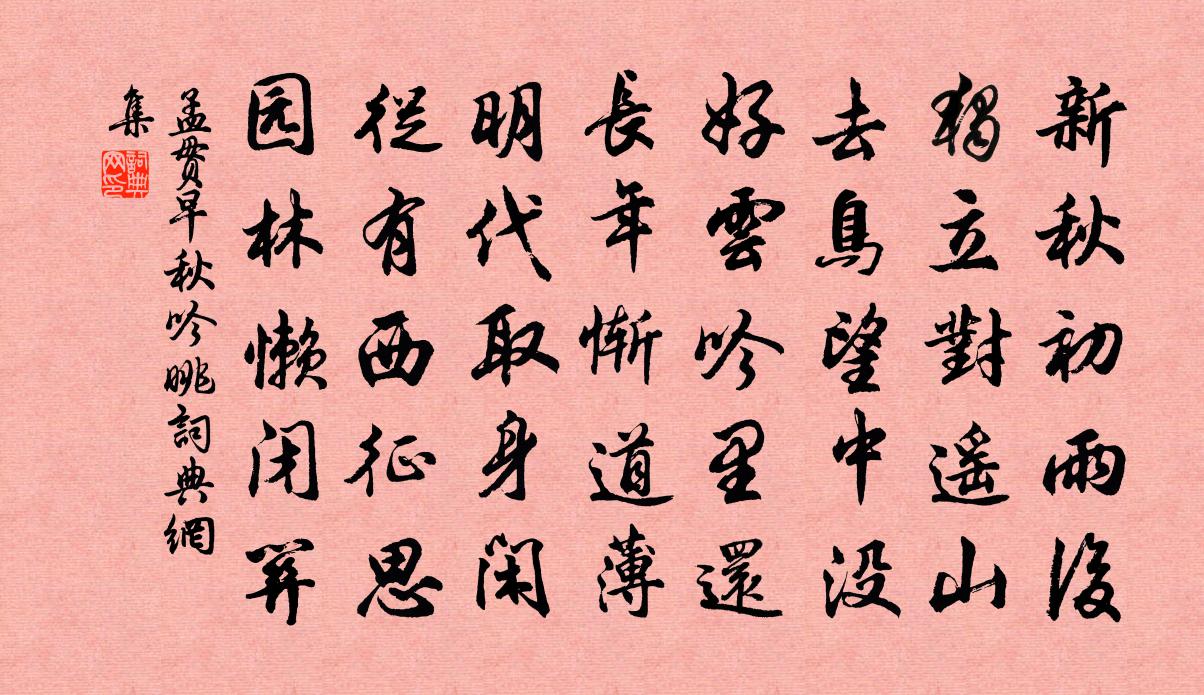 新秋初雨後
獨立對遥山
去鳥望中没
好雲吟里還
長年慚道薄
明代取身閑
從有西征思
园林懒闭關
孟貫早秋吟眺詞典網
集
詞典网印